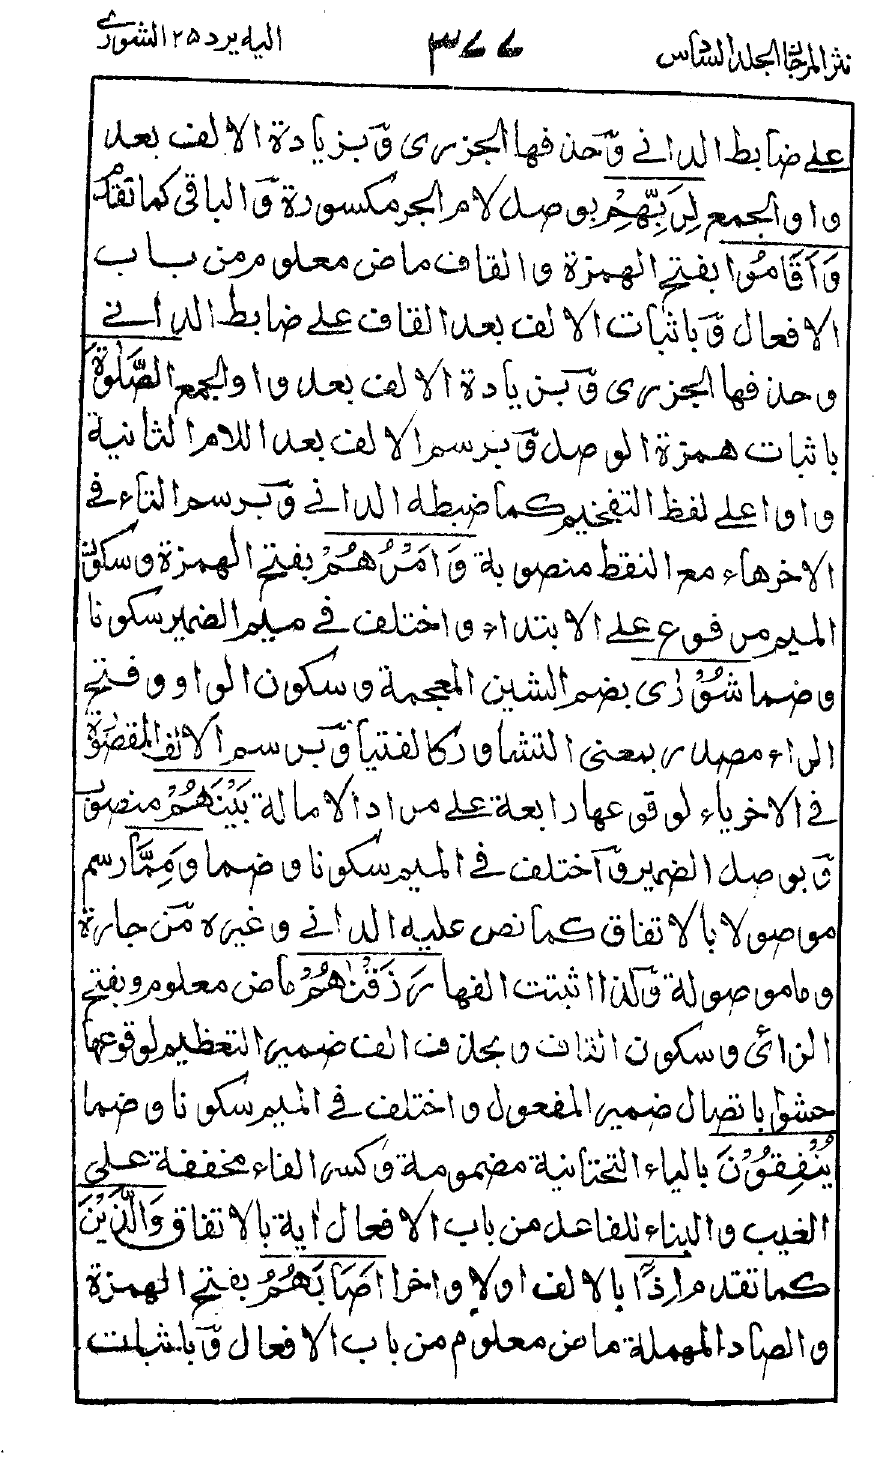 نثر المرجان المجلد السادس
٣٧٧
اليه يرد ٢٥ الشورى
على ضابط الداني وحذفها الجزرى وبزيادة الالف بعد
واو الجمع لِرَبِّهِمْ بوصل لام الجر مكسورة والباقى كما تقدم
وَاَقَامُوا بفتح الهمزة والقاف ماض معلوم من باب
الافعال وباثبات الالف بعد القاف على ضابط الداني
وحذفها الجزرى وبزيادة الالف بعد واو الجمع الصَّلٰوةَ
باثبات همزة الوصل وبرسم الالف بعد اللام الثانية
واوا على لفظ التفخيم كما ضبطه الداني وبرسم التاء في
الاخر هاء مع النقط منصوبة وَاَمْرُهُمْ بفتح الهمزة وسكون
الميم مرفوع على الابتداء واختلف في ميم الضمير سكونا
وضما شُوْرٰى بضم الشين المعجمة وسكون الواو وفتح
الراء مصدر بمعنى التشاور كالفتيا وبرسم الالف المقصورة
في الاخر ياء لوقوعها رابعة على مراد الامالة بَيْنَهُمْ منصوب
وبوصل الضمير واختلف في الميم سكونا وضما وَمِمَّا رسم
موصولا بالاتفاق كما نص عليه الداني وغيره من جارة
وما موصولة وكذا اثبتت الفها رَزَقْنٰهُمْ ماض معلوم وبفتح
الزاى وسكون القاف وبحذف الف ضمير التعظيم لوقوعها
حشوا باتصال ضمير المفعول واختلف في الميم سكونا وضما
يُنْفِقُوْنَ بالياء التحتانية مضمومة وكسر الفاء مخففة على
الغيب والبناء للفاعل من باب الافعال اٰية بالاتفاق وَالَّذِيْنَ
كما تقدم اِذَا بالالف اولا واخرا اَصَابَهُمُ بفتح الهمزة
والصاد المهملة ماض معلوم من باب الافعال وباثبات